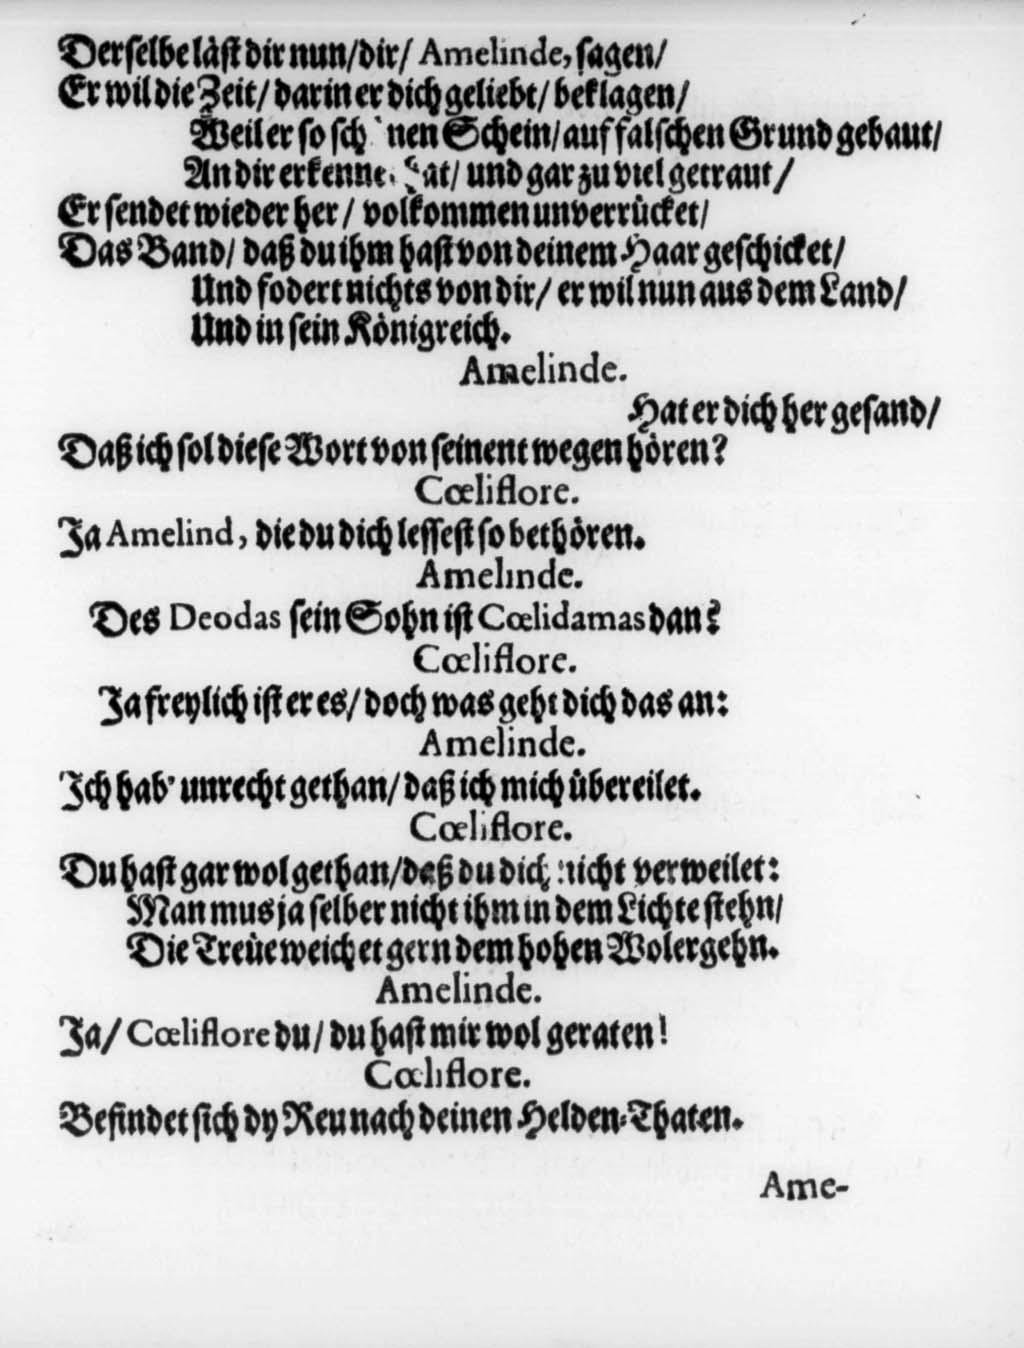 Derselbe läst dir nun/dir/ Amelinde, sagen/
Er wil die Zeit/ darin er dich geliebt/ beklagen/
Weil er so sch nen Schein/ auf falschen Grund gebaut/
An dir und gar zu viel getraut/
Er sendet wieder her/ volkommen unverrücket/
Das Band/ daß du ihm hast von deinem Haar geschicket/
Und fodert nichts von dir/ er wil nun aus dem Land/
Und in sein Königreich.
Amelinde.
Hat er dich her gesand/
Daß ich sol diese Wort von seinent wegen hören?
Cœliflore.
Ja Amelind, die du dich lessest so bethören.
Amelinde.
Des Deodas sein Sohn ist Cœlidamas dan?
Cœliflore.
Ja freylich ist er es/ doch was geht dich das an:
Amelinde.
Ich hab' unrecht gethan/ daß ich mich übereilet.
Cœliflore.
Du hast gar wol gethan/daß du dich nicht verweilet:
Man mus ja selber nicht ihm in dem Lichte stehn/
Die Treüe weichet gern dem hohen Wolergehn.
Amelinde.
Ja/ Cœliflore du/ du hast mir wol geraten!
Cœliflore.
Befindet sich dy Reu nach deinen Helden-Thaten.
Ame-